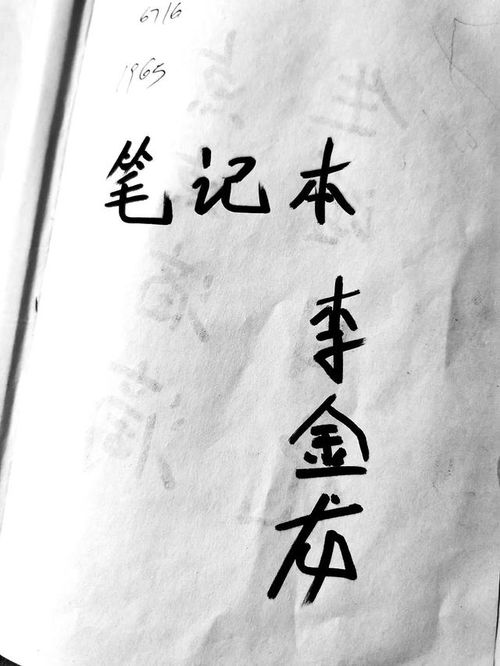 6716
1965
笔记本
李金龙